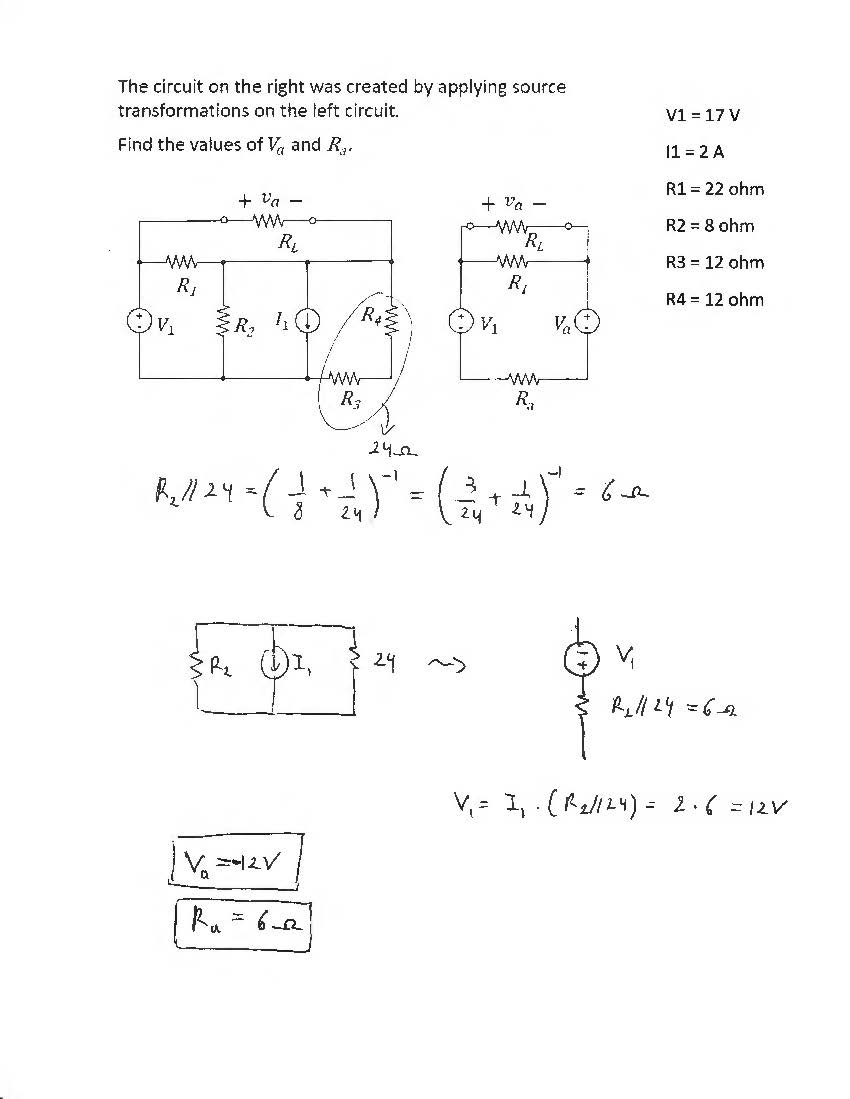 The circuit on the right was created by applying source
transformations on the left circuit.
Find the values of Va and Ra.
V1 = 17 V
I1 = 2 A
R1 = 22 ohm
R2 = 8 ohm
R3 = 12 ohm
R4 = 12 ohm
+ va −
RL
R1
V1
R2
I1
R4
R3
+ va −
RL
R1
V1
Va
Ra
24Ω
R2 // 24 = (1/8 + 1/24)^-1 = (3/24 + 1/24)^-1 = 6 Ω
R2
I1
24
~>
V1
R2//24 = 6Ω
V1 = I1 · (R2//24) = 2 · 6 = 12V
Va = -12V
Ra = 6Ω